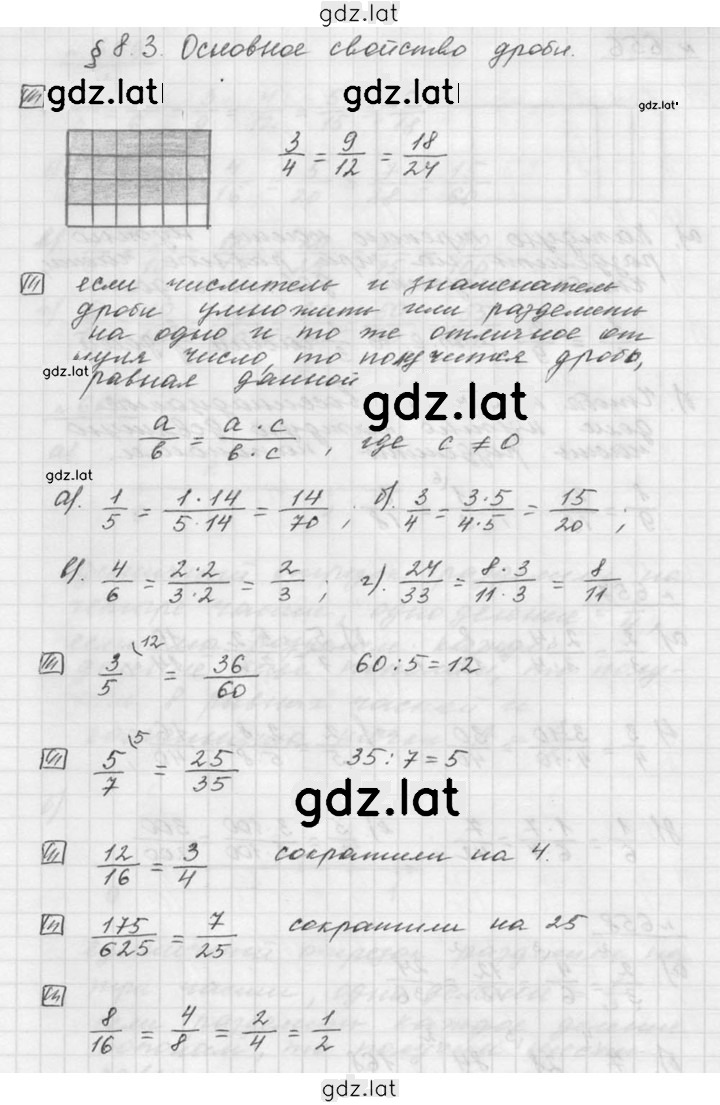 gdz.lat
§ 8.3. Основное свойство дроби.
gdz.lat gdz.lat gdz.lat
3/4 = 9/12 = 18/24
если числитель и знаменатель
дроби умножить или разделить
на одно и то же отличное от
нуля число, то получится дробь,
gdz.lat
равная данной
gdz.lat
a/в = a·c/в·c , где c ≠ 0
gdz.lat
а). 1/5 = 1·14/5·14 = 14/70 ; б). 3/4 = 3·5/4·5 = 15/20 ;
в). 4/6 = 2·2/3·2 = 2/3 , г). 24/33 = 8·3/11·3 = 8/11
3/5 \12 = 36/60 60:5=12
5/7 \5 = 25/35 35:7=5
gdz.lat
12/16 = 3/4 сократили на 4.
175/625 = 7/25 сократили на 25
8/16 = 4/8 = 2/4 = 1/2
gdz.lat